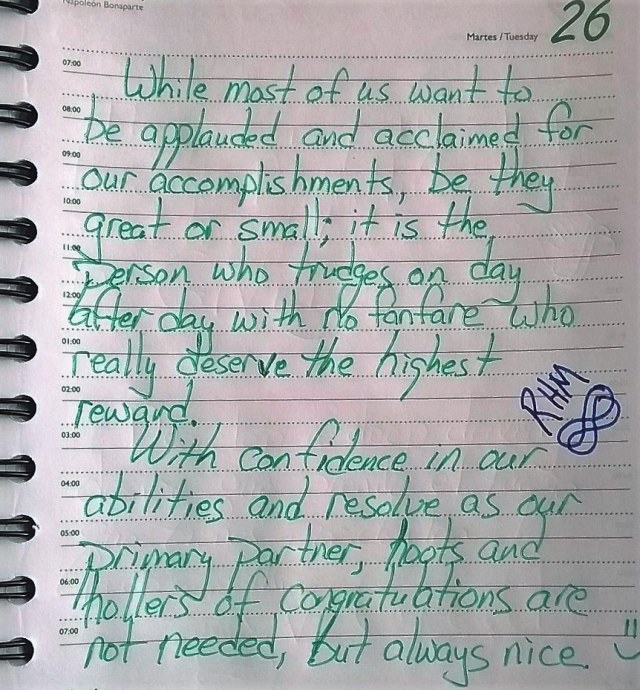 Napoleón Bonaparte
Martes / Tuesday 26
07:00
While most of us want to
08:00
be applauded and acclaimed for
09:00
our accomplishments, be they
10:00
great or small; it is the
11:00
person who trudges on day
12:00
after day with no fanfare who
01:00
really deserve the highest
02:00
reward.
RHM
03:00
With confidence in our
04:00
abilities and resolve as our
05:00
primary partner, hoots and
06:00
hollers of congratulations are
07:00
not needed, but always nice.